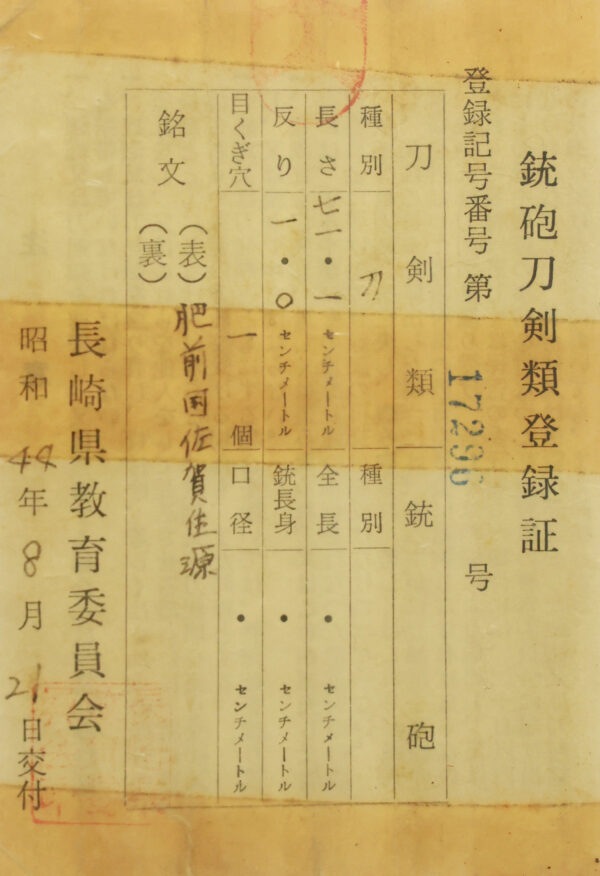 銃砲刀剣類登録証
登録記号番号 第 17296 号
刀剣類 銃砲
種別 刀 種別
長さ 七一・一 センチメートル 全長 ・ センチメートル
反り 一・〇 センチメートル 銃身長 ・ センチメートル
目くぎ穴 一 個 口径 ・ センチメートル
銘文 (表) 肥前国佐賀住源
(裏)
長崎県教育委員会
昭和 44 年 8 月 21 日交付